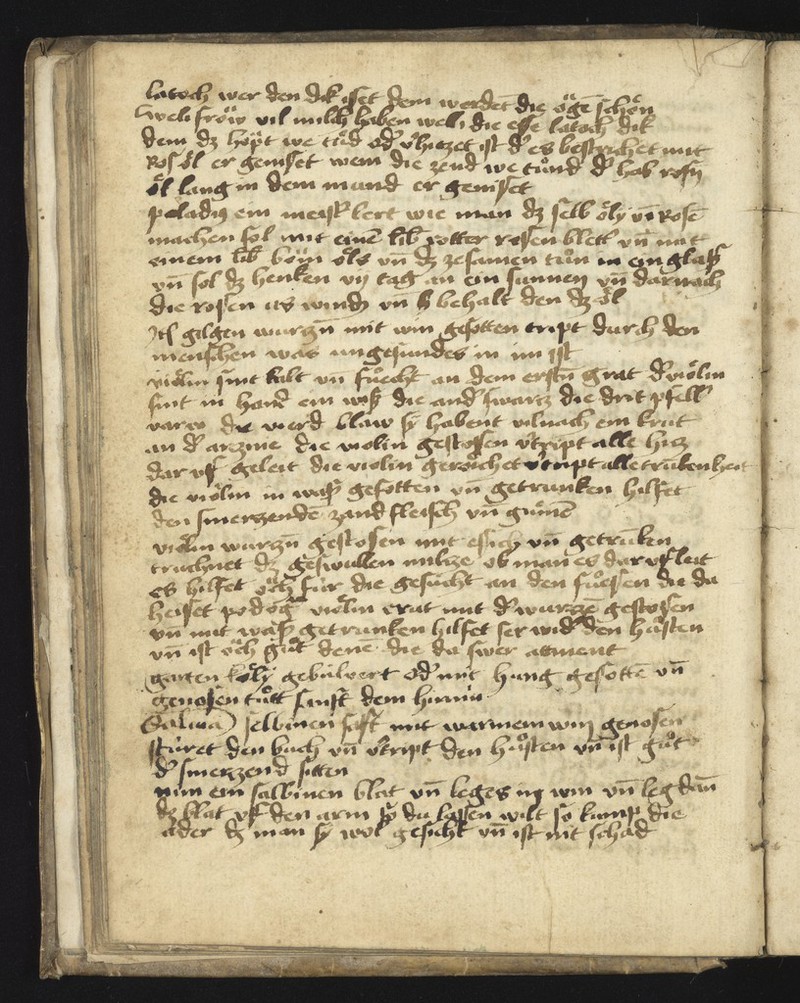 latoch wer den dik isset dem werdēt die ögē schön
Weli fröw vil milch haben well die esse latoch dik
dem dz höpt we tůd od' v'hitzet ist d' es bestrichet mit
Ros öl er geniset wem die zend we tůnd d' hab rosin
öl lang in dem mund er geniset
paladius ein meist' lert wie man dz selb öly vō Rosē
machen sol mit einē lib' rotter rosen blett' vn̄ mit
einem lib' böm öls vn̄ dz zesamen tůn in ein glaß
vn̄ sol dz henken vij tag an ein sunnen vn̄ darnach
die rosen us wind' vn̄ behalt den dz öl
Itē gilgen wurzn̄ mit win gesotten tript durch den
menschen was ungesundes in im ist
violin sint kalt vn̄ fůcht an dem erstn̄ grat d' violin
sint in hand' ein wiß die and' swarz die drit pfell'
varw die vierd blaw sy habent vilnach ein krat
an d' arznie die violin gestossen v'tript alle hitz
dar vf geleit die violin geröchet v'tript alle trukenheit
die violin in wass' gesotten vn̄ getrunken hilfet
den smerzendē zandfleisch vn̄ gůmē
violin wurzn̄ gestosen mit essich vn̄ getrūken
truchnet dz geswullen milze ob man es dar vf leit
es hilfet öch für die gesücht an den füessen die da
heiset podogra violin krut mit d' wurzzē gestossen
vn̄ mit wass' getrunken hilfet ser wid' den hůsten
vn̄ ist öch gůt denē die da swer atment
garten köly gebulvert od' mit hung gesottē vn̄
genossen tůtt sanft dem hirni
Salvia selbinen saft mit warmem win genosen
stüret den buch vn̄ v'tript den hůsten vn̄ ist gůt
d' smerzend sitten
nim ein salbinen blat vn̄ leg es in win vn̄ leg dān
dz blat vf den arm so du lassen wilt so kump die
ader dz man sy wol gesicht vn̄ ist nit schad